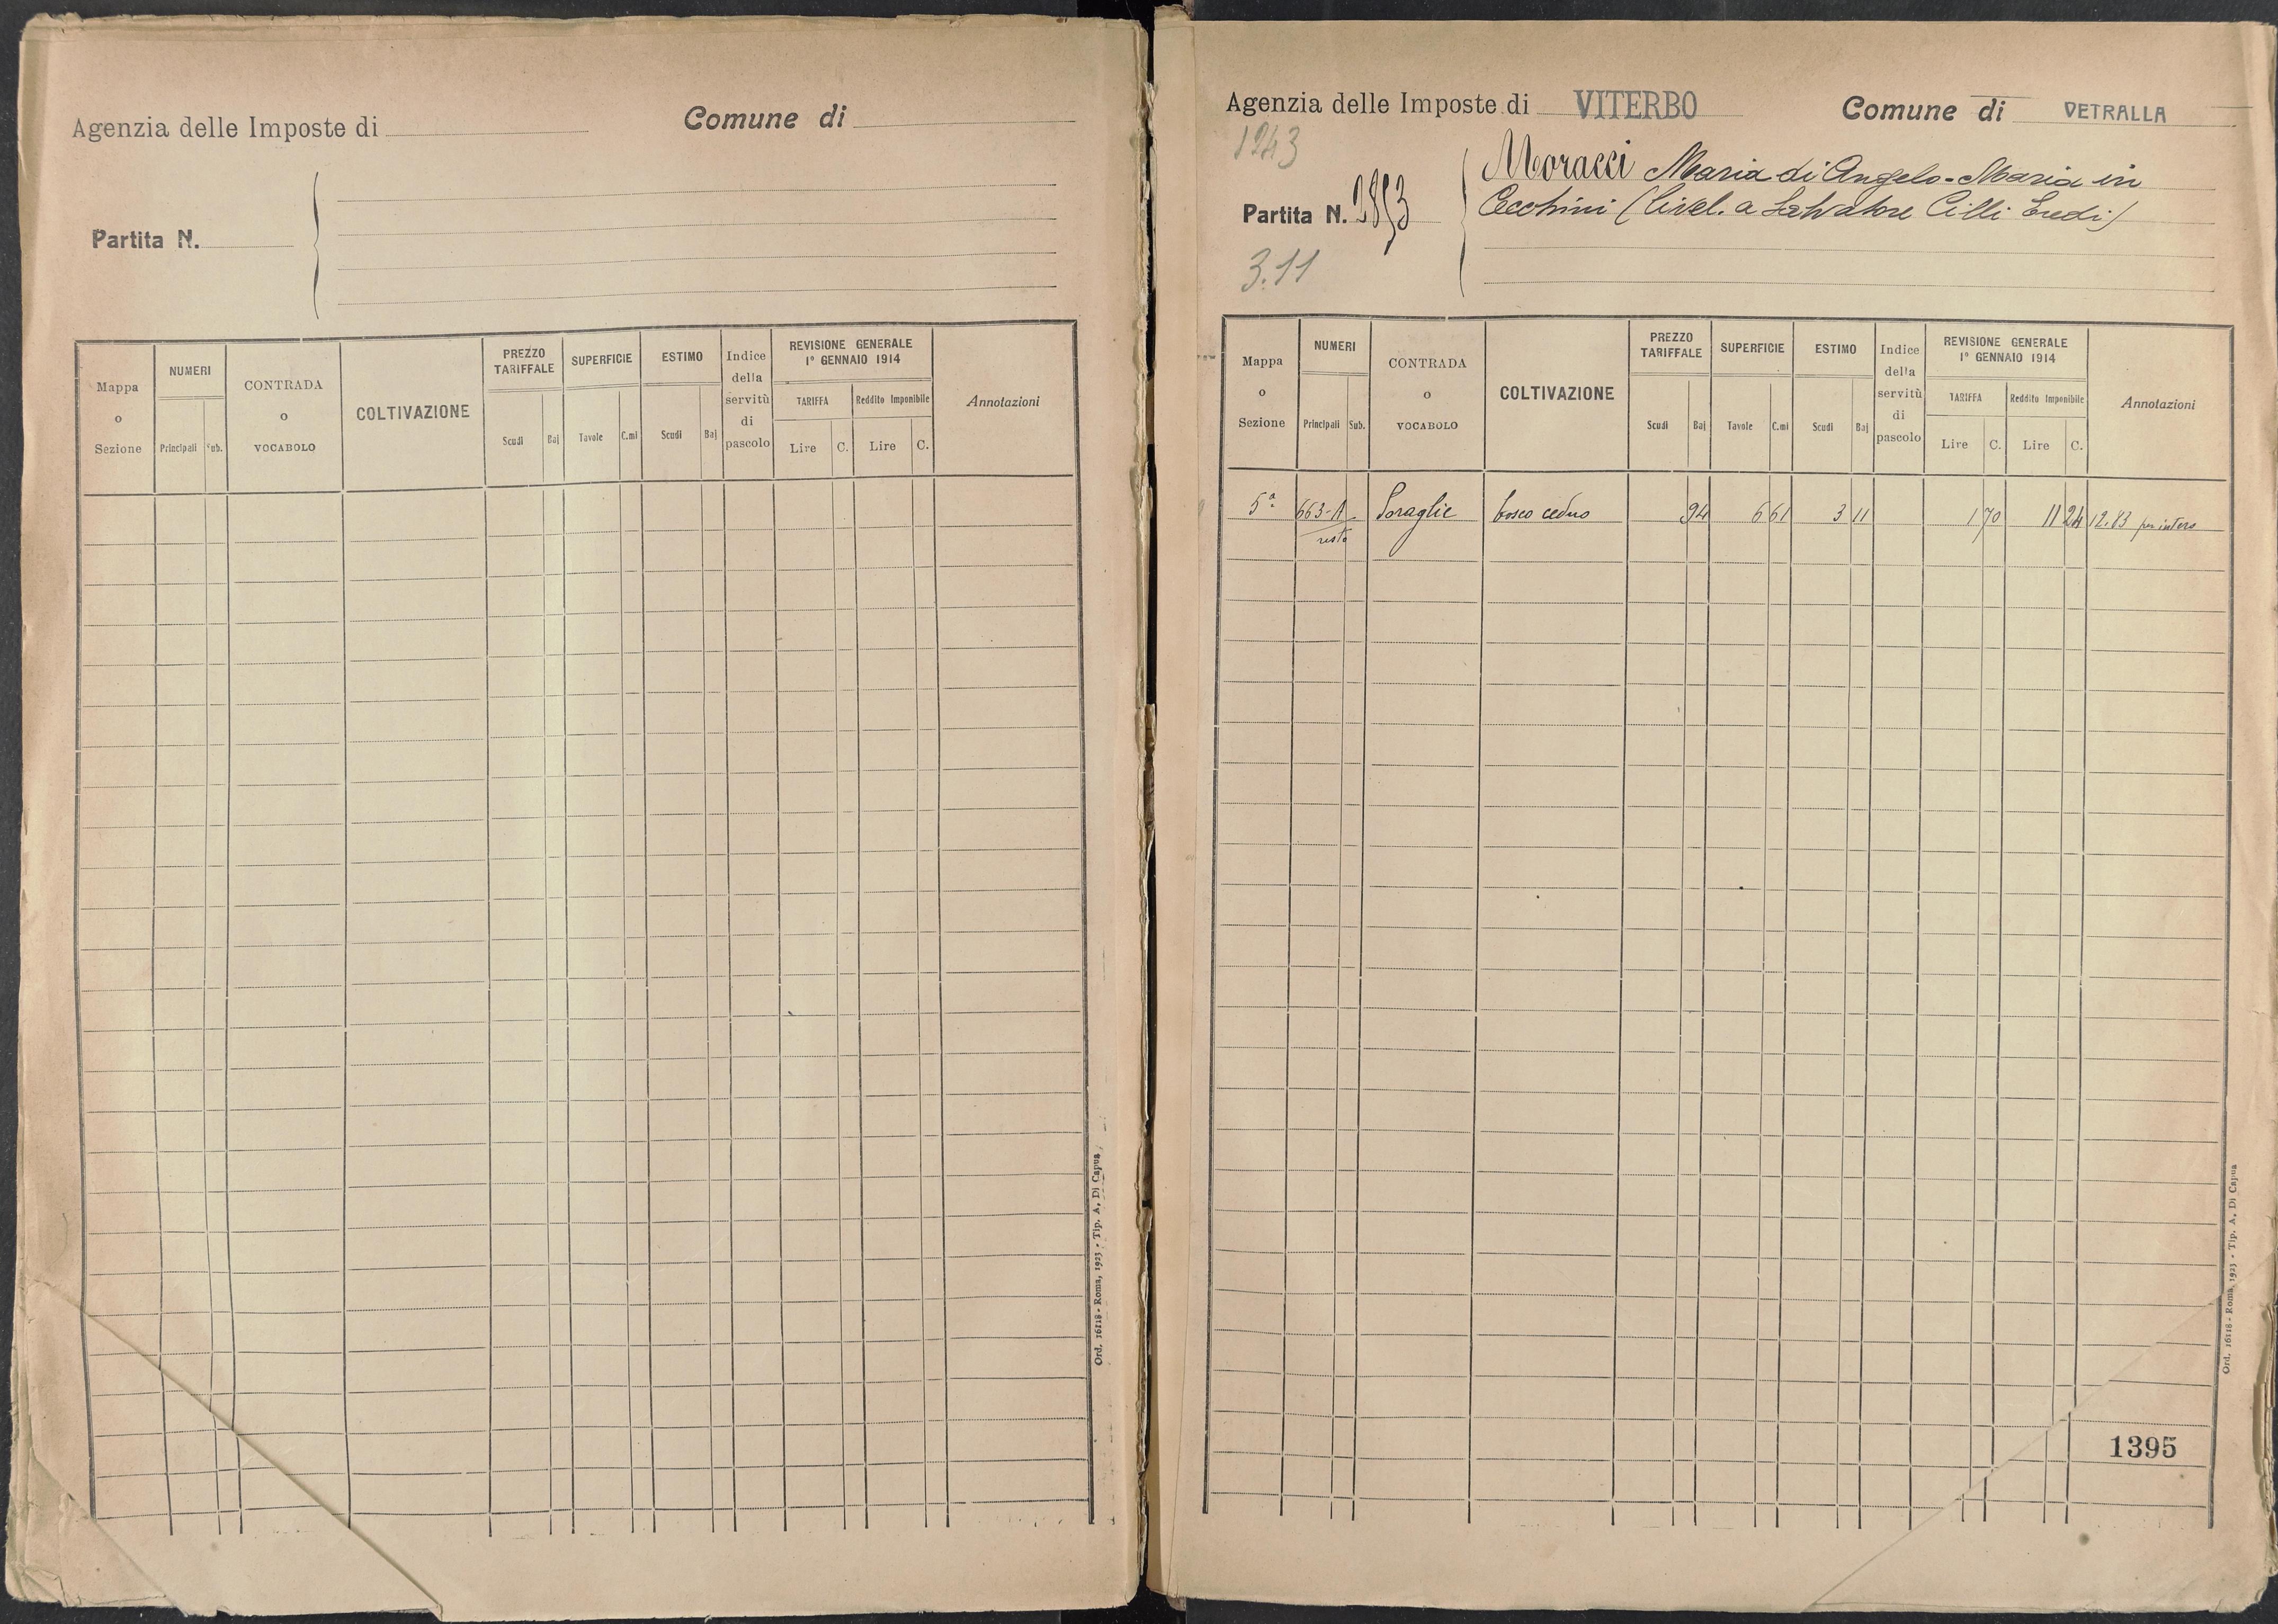 Agenzia delle Imposte di
Comune di
Partita N.
Mappa o Sezione
NUMERI
Principali
Sub.
CONTRADA o VOCABOLO
COLTIVAZIONE
PREZZO TARIFFALE
Scudi
Baj
SUPERFICIE
Tavole
C.mi
ESTIMO
Scudi
Baj
Indice della servitù di pascolo
REVISIONE GENERALE
1° GENNAIO 1914
TARIFFA
Reddito Imponibile
Lire
C.
Lire
C.
Annotazioni
Ord. 16118 - Roma, 1923 - Tip. A. Di Capua
Agenzia delle Imposte di VITERBO
Comune di VETRALLA
1243
Partita N. 2853
3.11
Moracci Maria di Angelo-Maria in
Cecchini (livel. a Salvatore Cilli Eredi)
Mappa o Sezione
NUMERI
Principali
Sub.
CONTRADA o VOCABOLO
COLTIVAZIONE
PREZZO TARIFFALE
Scudi
Baj
SUPERFICIE
Tavole
C.mi
ESTIMO
Scudi
Baj
Indice della servitù di pascolo
REVISIONE GENERALE
1° GENNAIO 1914
TARIFFA
Reddito Imponibile
Lire
C.
Lire
C.
Annotazioni
5ª 663-A Soraglie bosco ceduo 94 6 61 3 11 1 70 11 24 12.83 per intero
resto
1395
Ord. 16118 - Roma, 1923 - Tip. A. Di Capua